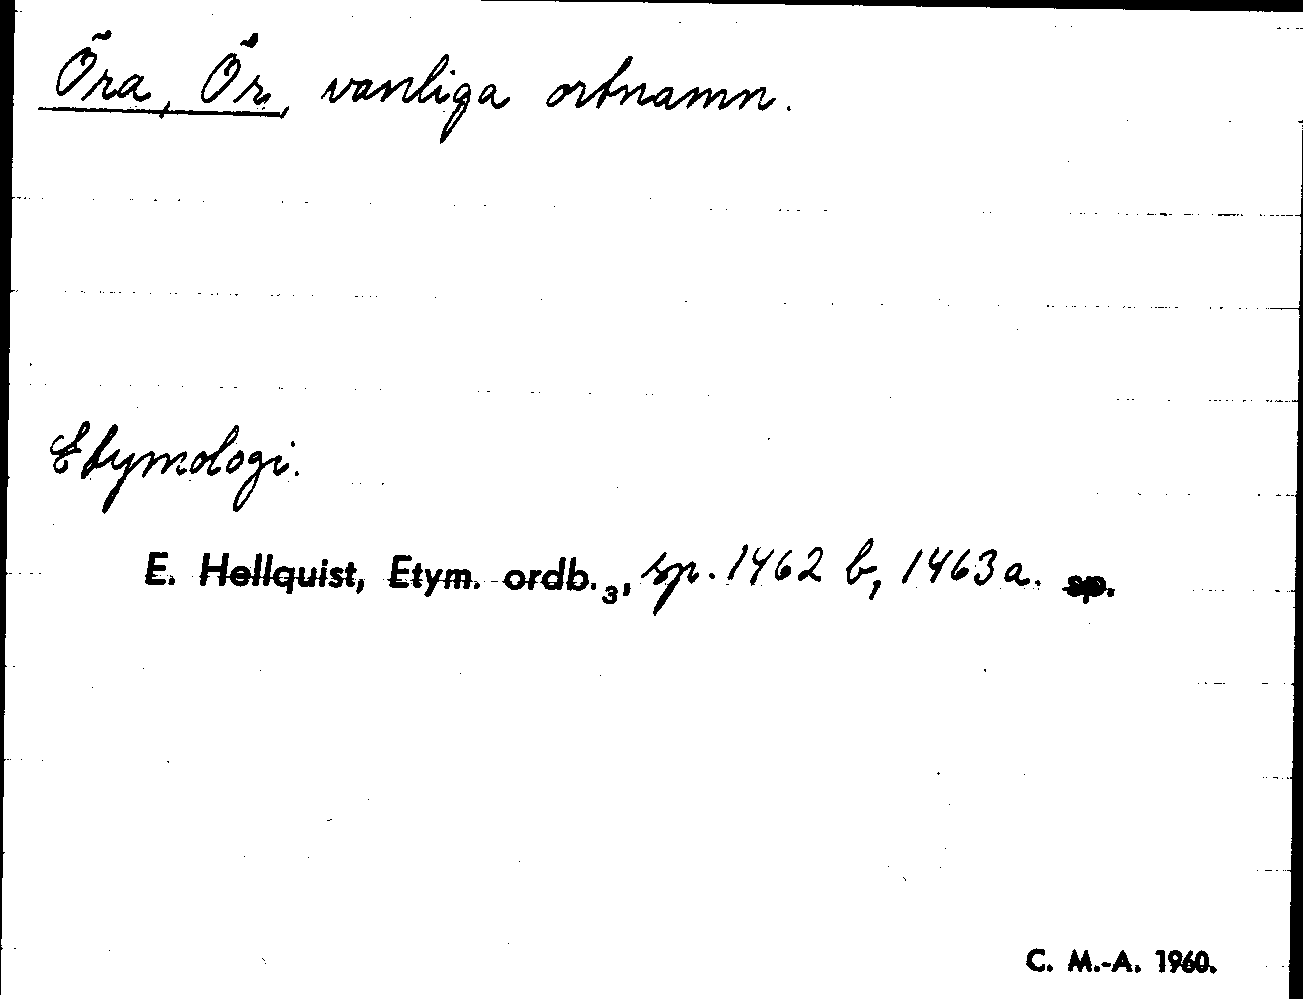 Öra, Ör, vanliga ortnamn.
Etymologi.
E. Hellquist, Etym. ordb.₃, sp. 1462 b, 1463 a. sp.
C. M.-A. 1960.